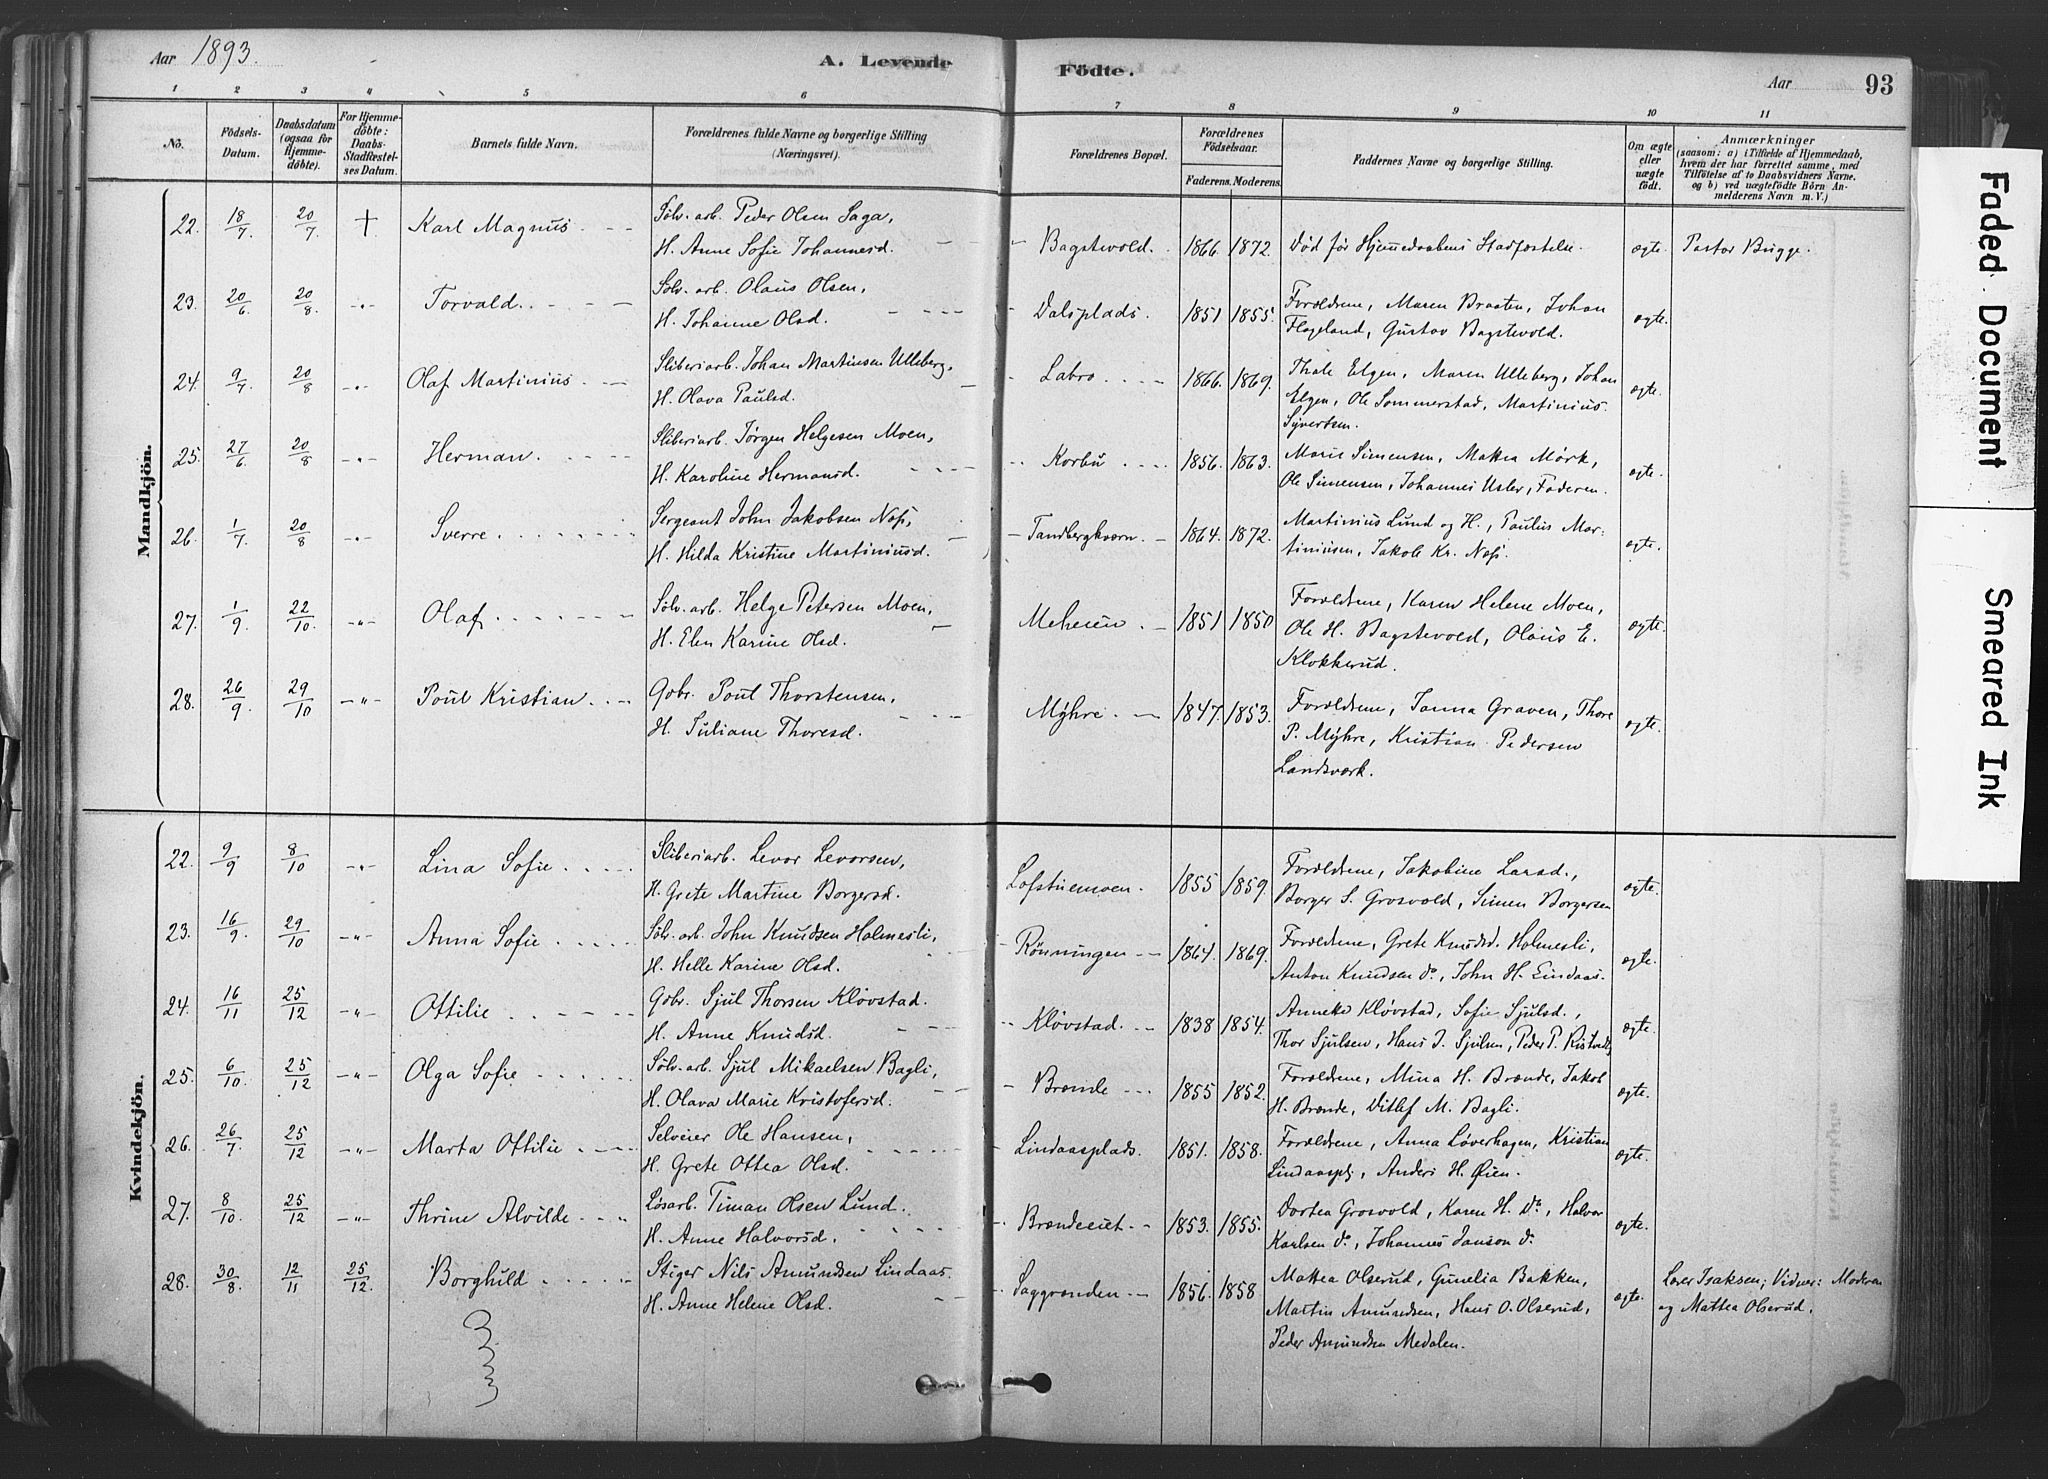 Aar 1893.
A. Levende Födte.
Aar 93
1 2 3 4 5 6 7 8 9 10 11
No. Födsels-Datum. Daabsdatum (ogsaa for Hjemmedöbte). For Hjemmedöbte: Daabs-Stadfæstelses Datum. Barnets fulde Navn. Forældrenes fulde Navne og borgerlige Stilling (Næringsvei). Forældrenes Bopæl. Forældrenes Födselsaar. Faderens. Moderens. Faddernes Navne og borgerlige Stilling. Om ægte eller uægte födt. Anmærkninger (saasom: a) i Tilfælde af Hjemmedaab, hvem der har forrettet samme, med Tilföielse af to Daabsvidners Navne. og b) ved uægtefödte Börn Anmelderens Navn m. V.)
Mandkjön.
22. 18/7 20/7 † Karl Magnus Sölv. arb. Peder Olsen Saga, Bagstevold. 1866. 1872. Död før Hjemmedaabens Stadfæstelse. ægte. Pastor Bugge.
H. Anne Sofie Johannesd.
23. 20/6 20/8 -"- Torvald. Sölv. arb. Olaus Olsen, Dalsplads. 1851 1855. Forældrene, Maren Braaten, Johan ægte.
H. Johanne Olsd. Flageland, Gustav Bagstevold.
24. 9/7 20/8 -"- Olaf Martinius Sliberiarb. Johan Martinsen Ulleberg, Labro 1866. 1869. Thale Elgen, Maren Ulleberg, Johan ægte.
H. Olava Paulsd. Elgen, Ole Sommerstad, Martinius
Syvertsen.
25. 27/6 20/8 -"- Herman. Sliberiarb. Jørgen Helgesen Moen, Korbu 1856. 1863. Marie Simensen, Mattea Mørk, ægte.
H. Karoline Hermansd. Ole Simensen, Johannes Usler, Faderen.
26. 1/7 20/8 -"- Sverre Sergeant John Jakobsen Næss, Tandbergkværn. 1864. 1872. Martinius Lund og H., Paulus Mar-
H. Hilda Kristine Martiniusd. tiniusen, Jakob Kr. Næss. ægte.
27. 1/9 22/10. -"- Olaf Sölv. arb. Helge Petersen Moen, Meheien 1851 1850 Forældrene, Karen Helene Moen, ægte.
H. Elen Karine Olsd. Ole H. Bagstevold, Olaus E.
Klokkerud.
28. 26/9 29/10 -"- Poul Kristian Gbr. Poul Thorstensen, Myhre. 1847. 1853. Forældrene, Janna Graven, Thore ægte.
H. Juliane Thoresd. P. Myhre, Kristian Pedersen
Landsværk.
Kvindekjön.
22. 9/9 8/10 -"- Lina Sofie Sliberiarb. Levor Levorsen, Lofstuemoen. 1855 1859. Forældrene, Jakobine Larsd., ægte.
H. Grete Martine Borgersd. Borger S. Grosvold, Simen Borgersen
23. 16/9. 29/10 -"- Anna Sofie Sölv. arb. John Knudsen Holmesli, Rönningen 1864. 1869. Forældrene, Grete Knudsd. Holmesli, ægte.
H. Helle Karine Olsd. Anton Knudsen do, John H. Lindaas.
24. 16/11 25/12 -"- Ottilie Gbr. Sjul Thorsen Kløvstad. Kløvstad. 1838 1854. Anneke Kløvstad, Sofie Sjulsd., ægte.
H. Anne Knudsd. Thor Sjulsen, Hans J. Sjulsen, Peder P. Ristvedt,
25. 6/10. 25/12 -"- Olga Sofie Sölv. arb. Sjul Mikaelsen Bagli, Brænde 1855 1852. Forældrene, Mina H. Brænde, Jakob ægte.
H. Olava Marie Kristofersd. H. Brænde, Ditlef M. Bagli.
26. 26/7. 25/12 -"- Marta Ottilie Selveier Ole Hansen, Lindaasplads. 1851. 1858. Forældrene, Anna Løverhagen, Kristian ægte.
H. Grete Ottea Olsd. Lindaaspl, Anders H. Øien.
27. 8/10. 25/12 -"- Thrine Alvilde Løsarb. Timan Olsen Lund. Brændeeiet 1853. 1855. Dortea Grosvold, Karen H. Do, Halvor ægte.
H. Anne Halvorsd. Karlsen do, Johannes Janson do
28. 30/8 12/11 25/12. Borghild Stiger Nils Amundsen Lindaas. Saggrenden 1856. 1858 Mattea Olserud, Gunelia Bakken, ægte. Lærer Isaksen; Vidner: Moderen
H. Anne Helene Olsd. Martin Amundsen, Hans O. Olserud, og Mattea Olserud.
Peder Amundsen Medalen.
Faded Document
Smeared Ink